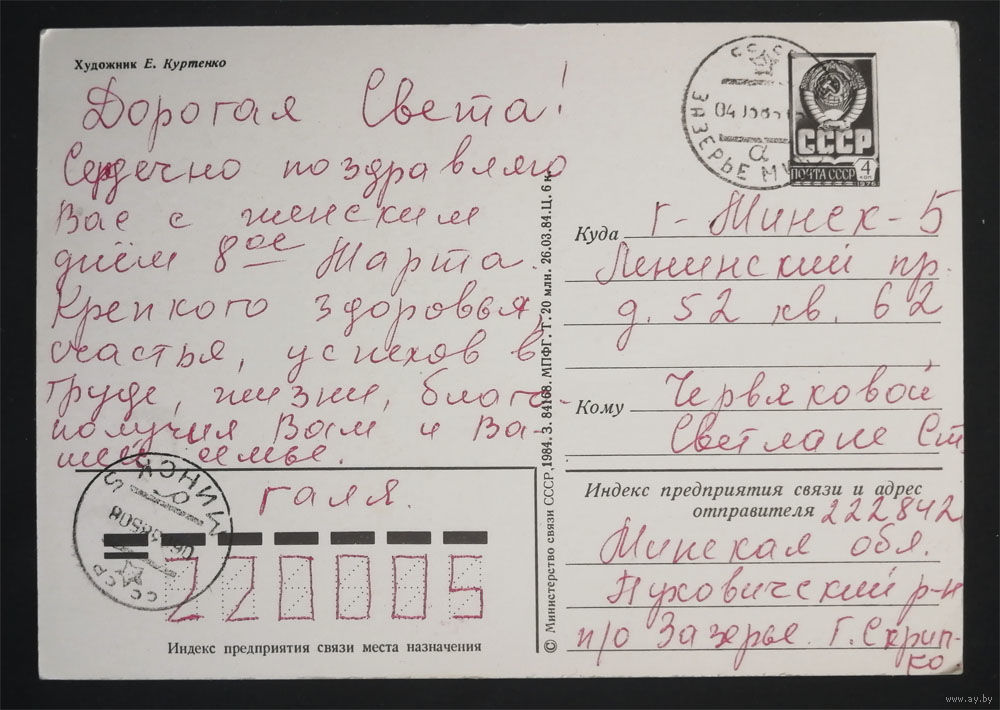 Художник Е. Куртенко
Дорогая Света!
Сердечно поздравляю
Вас с женским
днём 8ое Марта
Крепкого здоровья,
счастья, успехов в
труде, жизни, благо-
получия Вам и Ва-
шей семье.
Галя.
220005
Индекс предприятия связи места назначения
МИНСК 5
СССР
© Министерство связи СССР, 1984. З. 84168. МПФГ. Г. 20 млн. 26.03.84. Ц. 6 к.
СССР
ЗАЗЕРЬЕ
а
СССР
ПОЧТА СССР
4
КОП
1976
Куда г. Минск-5
Ленинский пр.
д. 52 кв. 62
Кому Червяковой
Светлане Ст
Индекс предприятия связи и адрес
отправителя 222842
Минская обл.
Пуховичский р-н
п/о Зазерье. Г. Скрип-
ко
www.ay.by